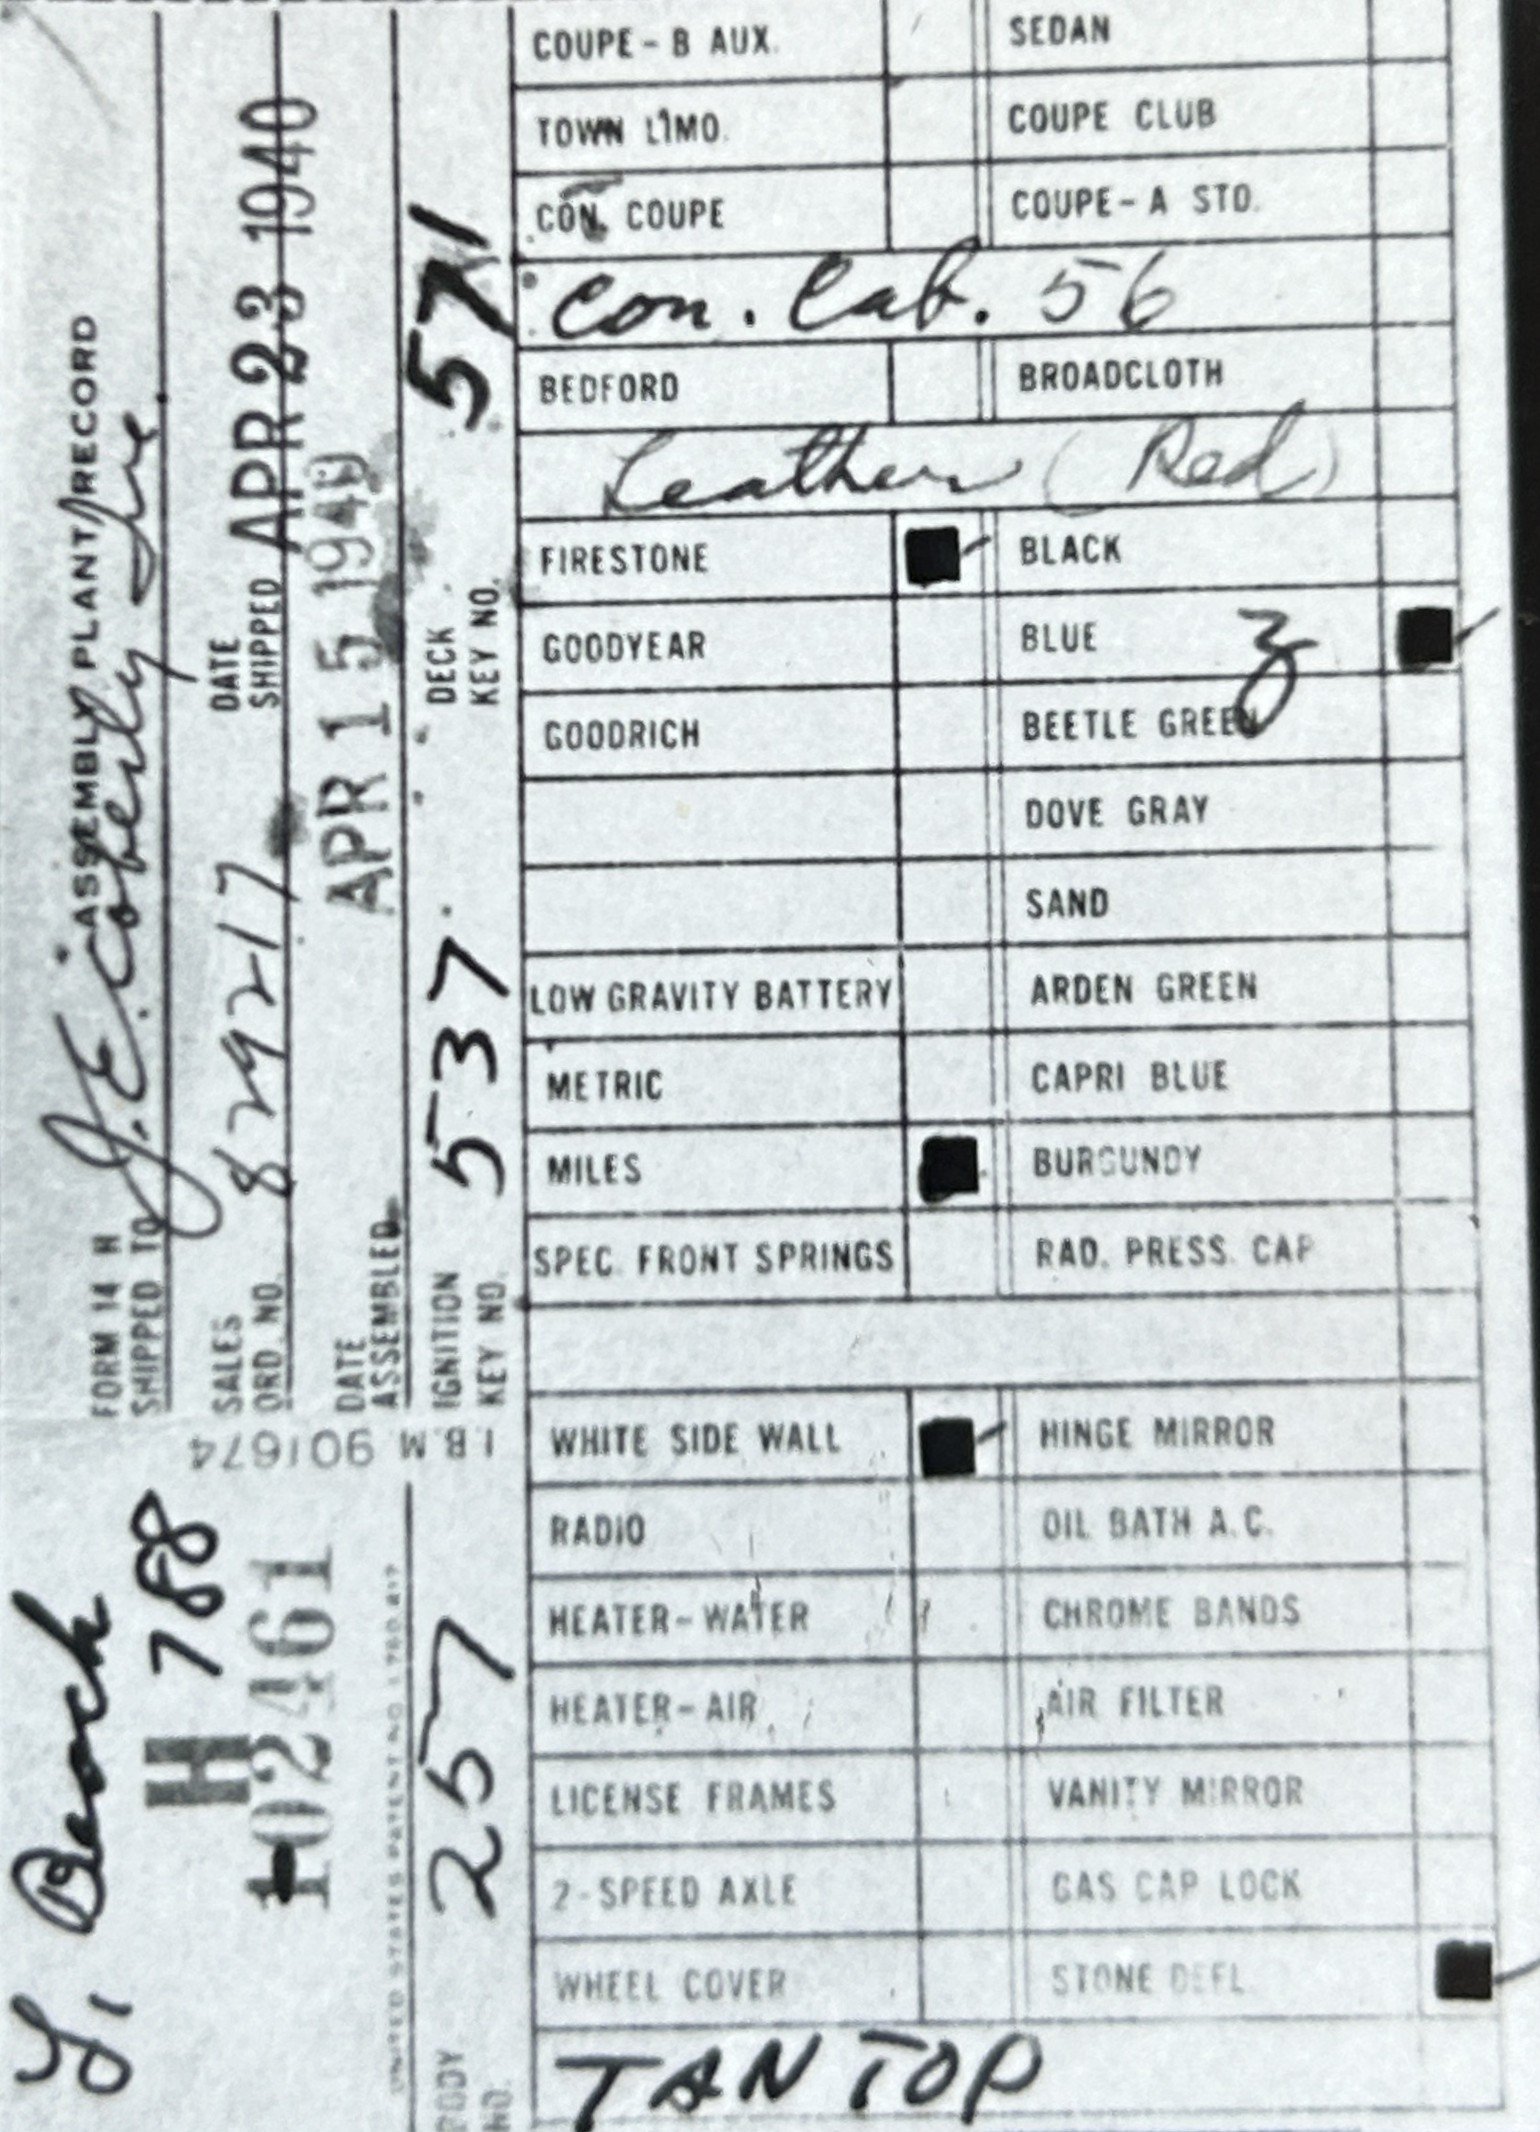 L. Beach
H 788
H 102461
UNITED STATES PATENT NO. 1,780,817
BODY NO. 257
I.B.M 901674
FORM 14 H ASSEMBLY PLANT RECORD
SHIPPED TO J.E. Coberly Inc.
SALES ORD. NO. 829217 DATE SHIPPED APR 23 1940
DATE ASSEMBLED APR 15 1940
IGNITION KEY NO. 537 DECK KEY NO. 571
COUPE - B AUX. SEDAN
TOWN LIMO. COUPE CLUB
CON. COUPE COUPE - A STD.
Con. Cab. 56
BEDFORD BROADCLOTH
Leather (Red)
FIRESTONE BLACK
GOODYEAR BLUE 3
GOODRICH BEETLE GREEN
DOVE GRAY
SAND
LOW GRAVITY BATTERY ARDEN GREEN
METRIC CAPRI BLUE
MILES BURGUNDY
SPEC. FRONT SPRINGS RAD. PRESS. CAP
WHITE SIDE WALL HINGE MIRROR
RADIO OIL BATH A.C.
HEATER - WATER CHROME BANDS
HEATER - AIR AIR FILTER
LICENSE FRAMES VANITY MIRROR
2 - SPEED AXLE GAS CAP LOCK
WHEEL COVER STONE DEFL.
TAN TOP